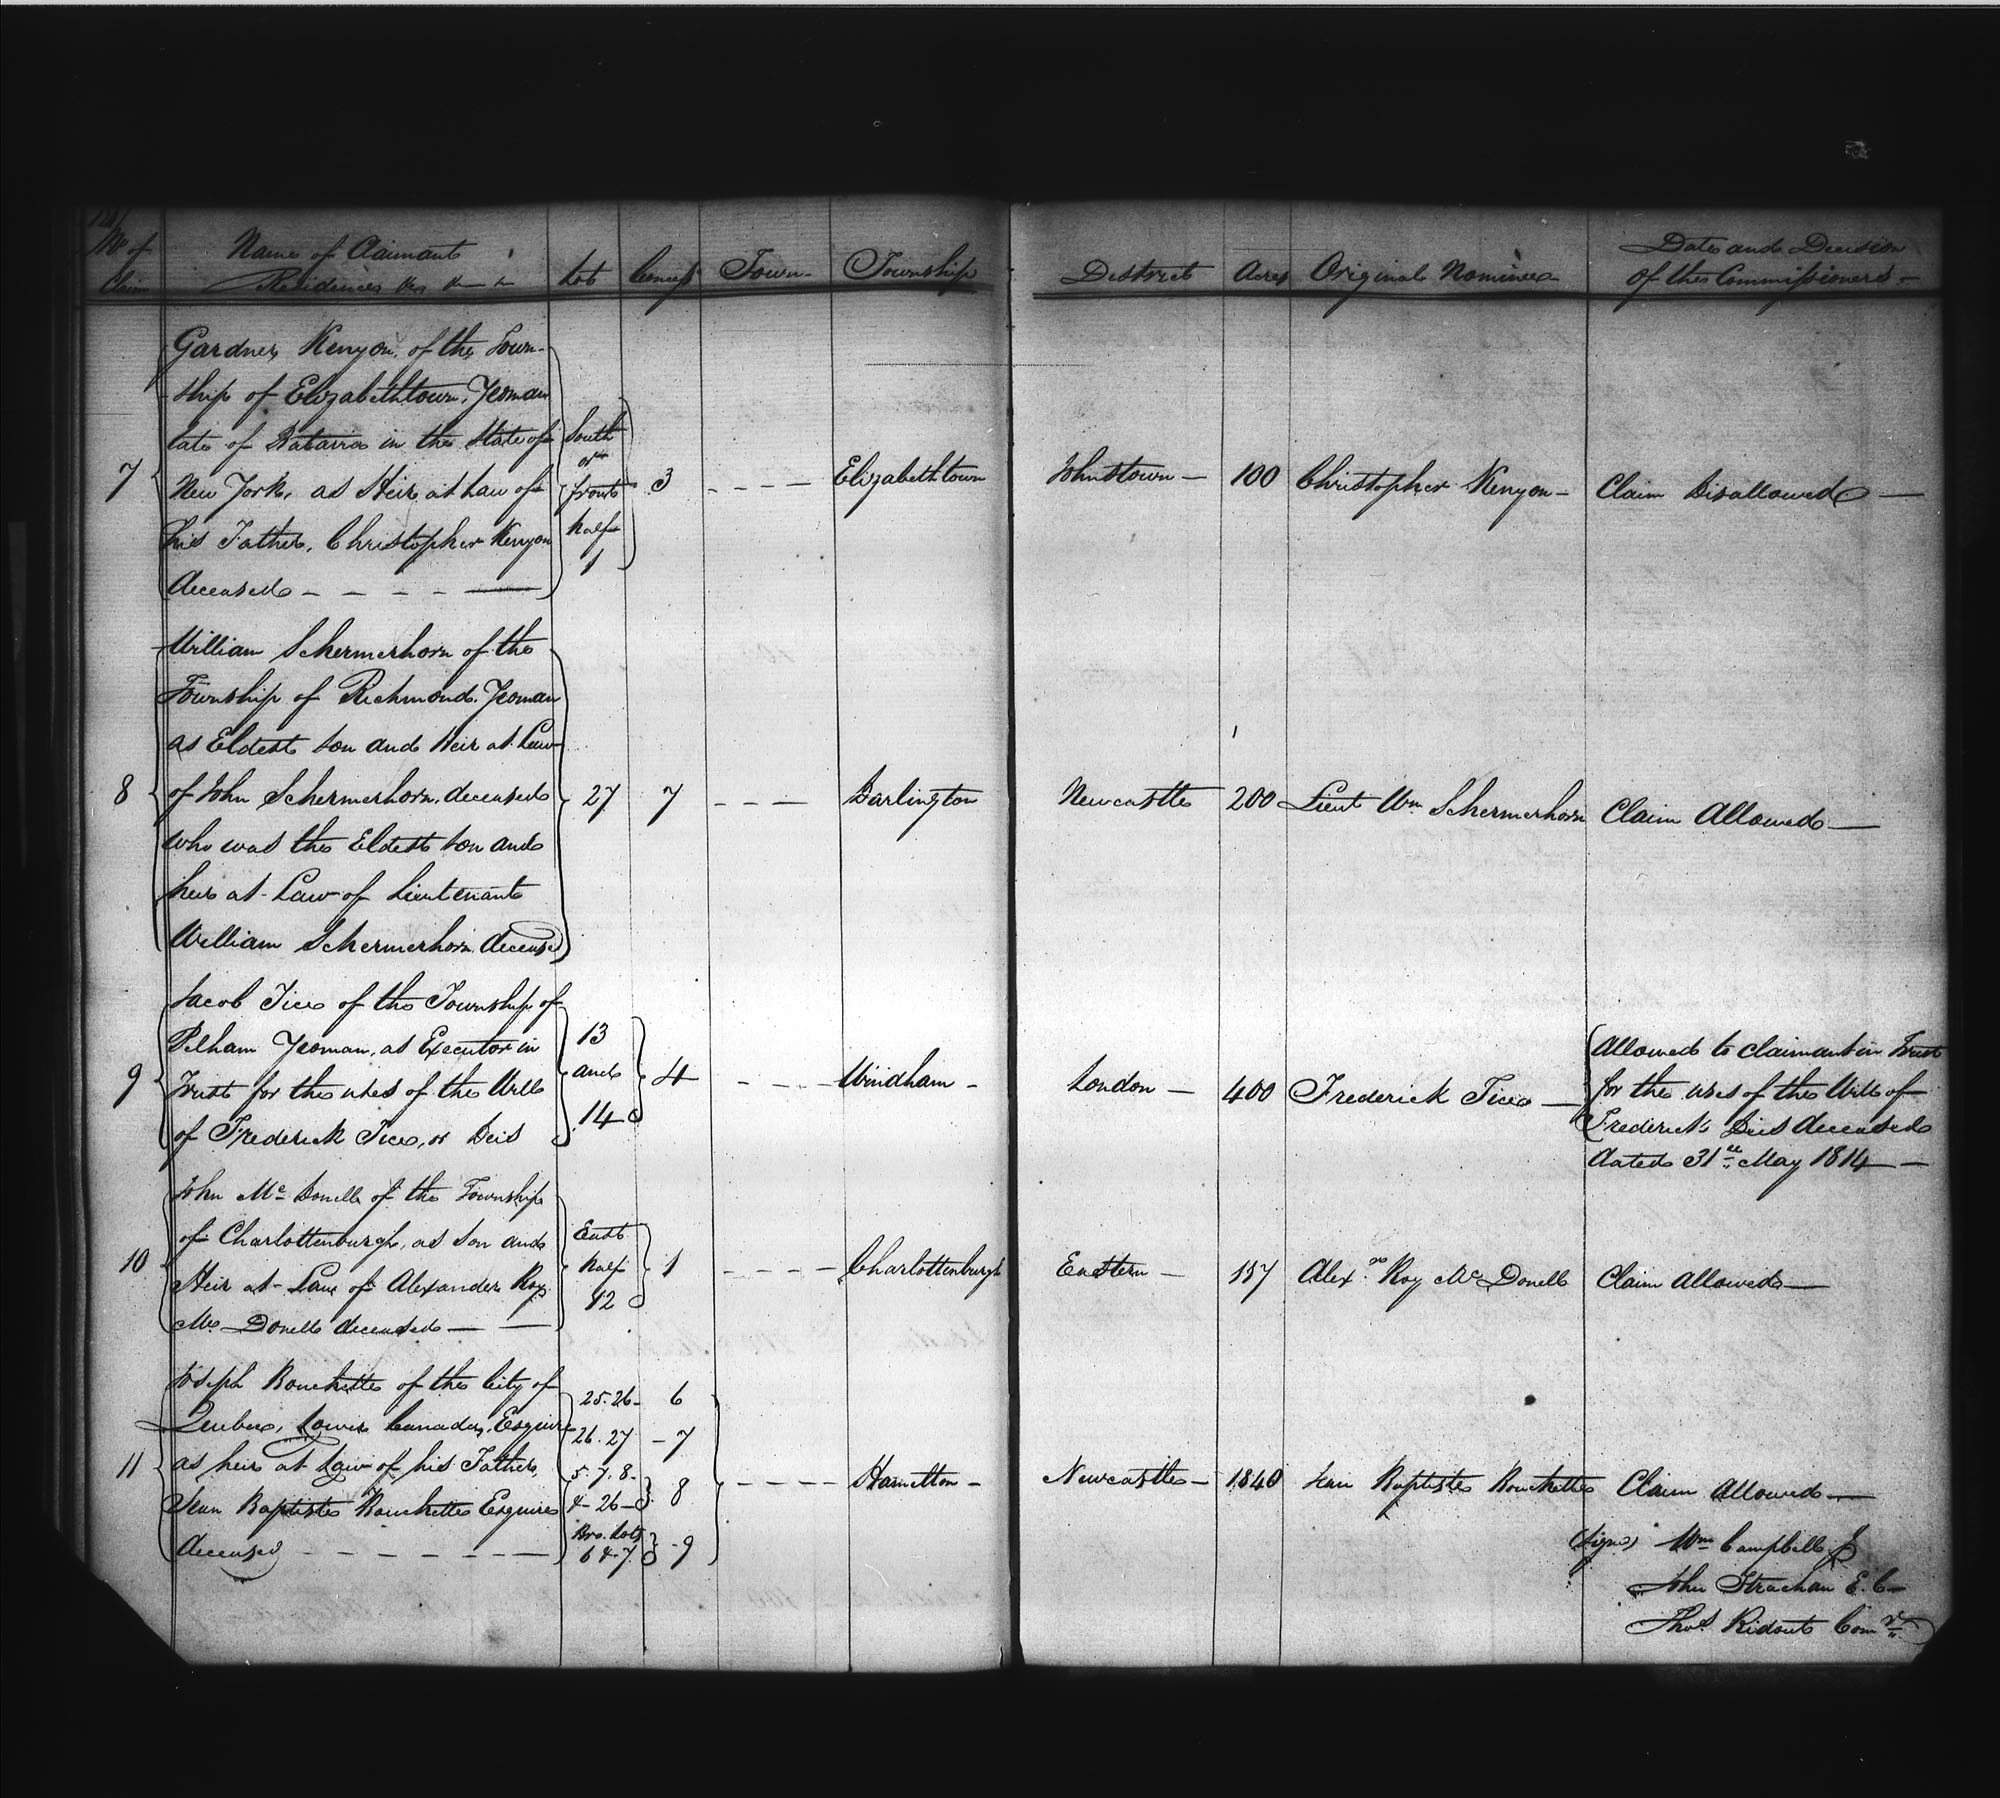 No of Claim
Name of Claimant
Residences &c &c &c
Lot
Concess
Town
Township
District
Acres
Original Nominee
Date and Decision
of the Commissioners
7
Gardner Kenyon of the Town-
ship of Elizabethtown, Yeoman
late of in the State of
New York, as Heir at Law of
his Father, Christopher Kenyon
deceased
South
or
front
half
1
3
Elizabethtown
Johnstown
100
Christopher Kenyon
Claim Disallowed
8
William Schermerhorn of the
Township of Richmond, Yeoman
as Eldest son and Heir at Law
of John Schermerhorn, deceased
who was the Eldest son and
heir at Law of Lieutenant
William Schermerhorn deceased
27
7
Darlington
Newcastle
200
Lieut Wm Schermerhorn
Claim Allowed
9
Jacob Tice of the Township of
Pelham Yeoman, as Executor in
Trust for the uses of the Will
of Frederick Tice, or Deis
13
and
14
4
Windham
London
400
Frederick Tice
Allowed to claimant in Trust
for the uses of the Will of
Frederick Deis deceased
dated 31st May 1814
10
John Mc Donell of the Township
of Charlottenburgh, as son and
Heir at Law of Alexander Roy
Mc Donell deceased
East
half
12
1
Charlottenburgh
Eastern
137
Alexr Roy Mc Donell
Claim Allowed
11
Joseph Bouchette of the City of
Quebec, Lower Canada, Esquire
as heir at Law of his Father,
Jean Baptiste Bouchette Esquire
deceased
25. 26 - 6
26. 27 - 7
5. 7. 8 -
& 26 - 8
Bro. Lots
6 & 7. - 9
Hamilton
Newcastle
1840
Jean Baptiste Bouchette
Claim Allowed
(signed) Wm Campbell J
John Strachan E. C
Thos Ridout Comr